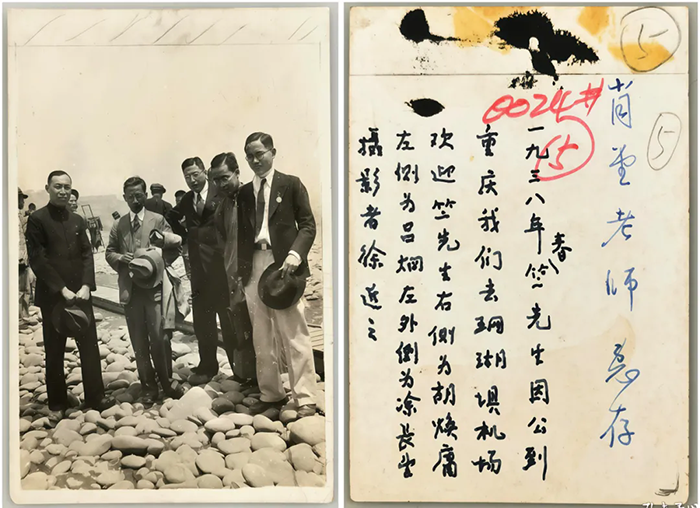 ⑤
0024#
⑮
⑤
肖堂老师惠存
一九三八年春竺先生因公到
重庆我们去珊瑚坝机场
欢迎竺先生右侧为胡焕庸
左侧为吕炯左外侧为涂长望
摄影者徐近之